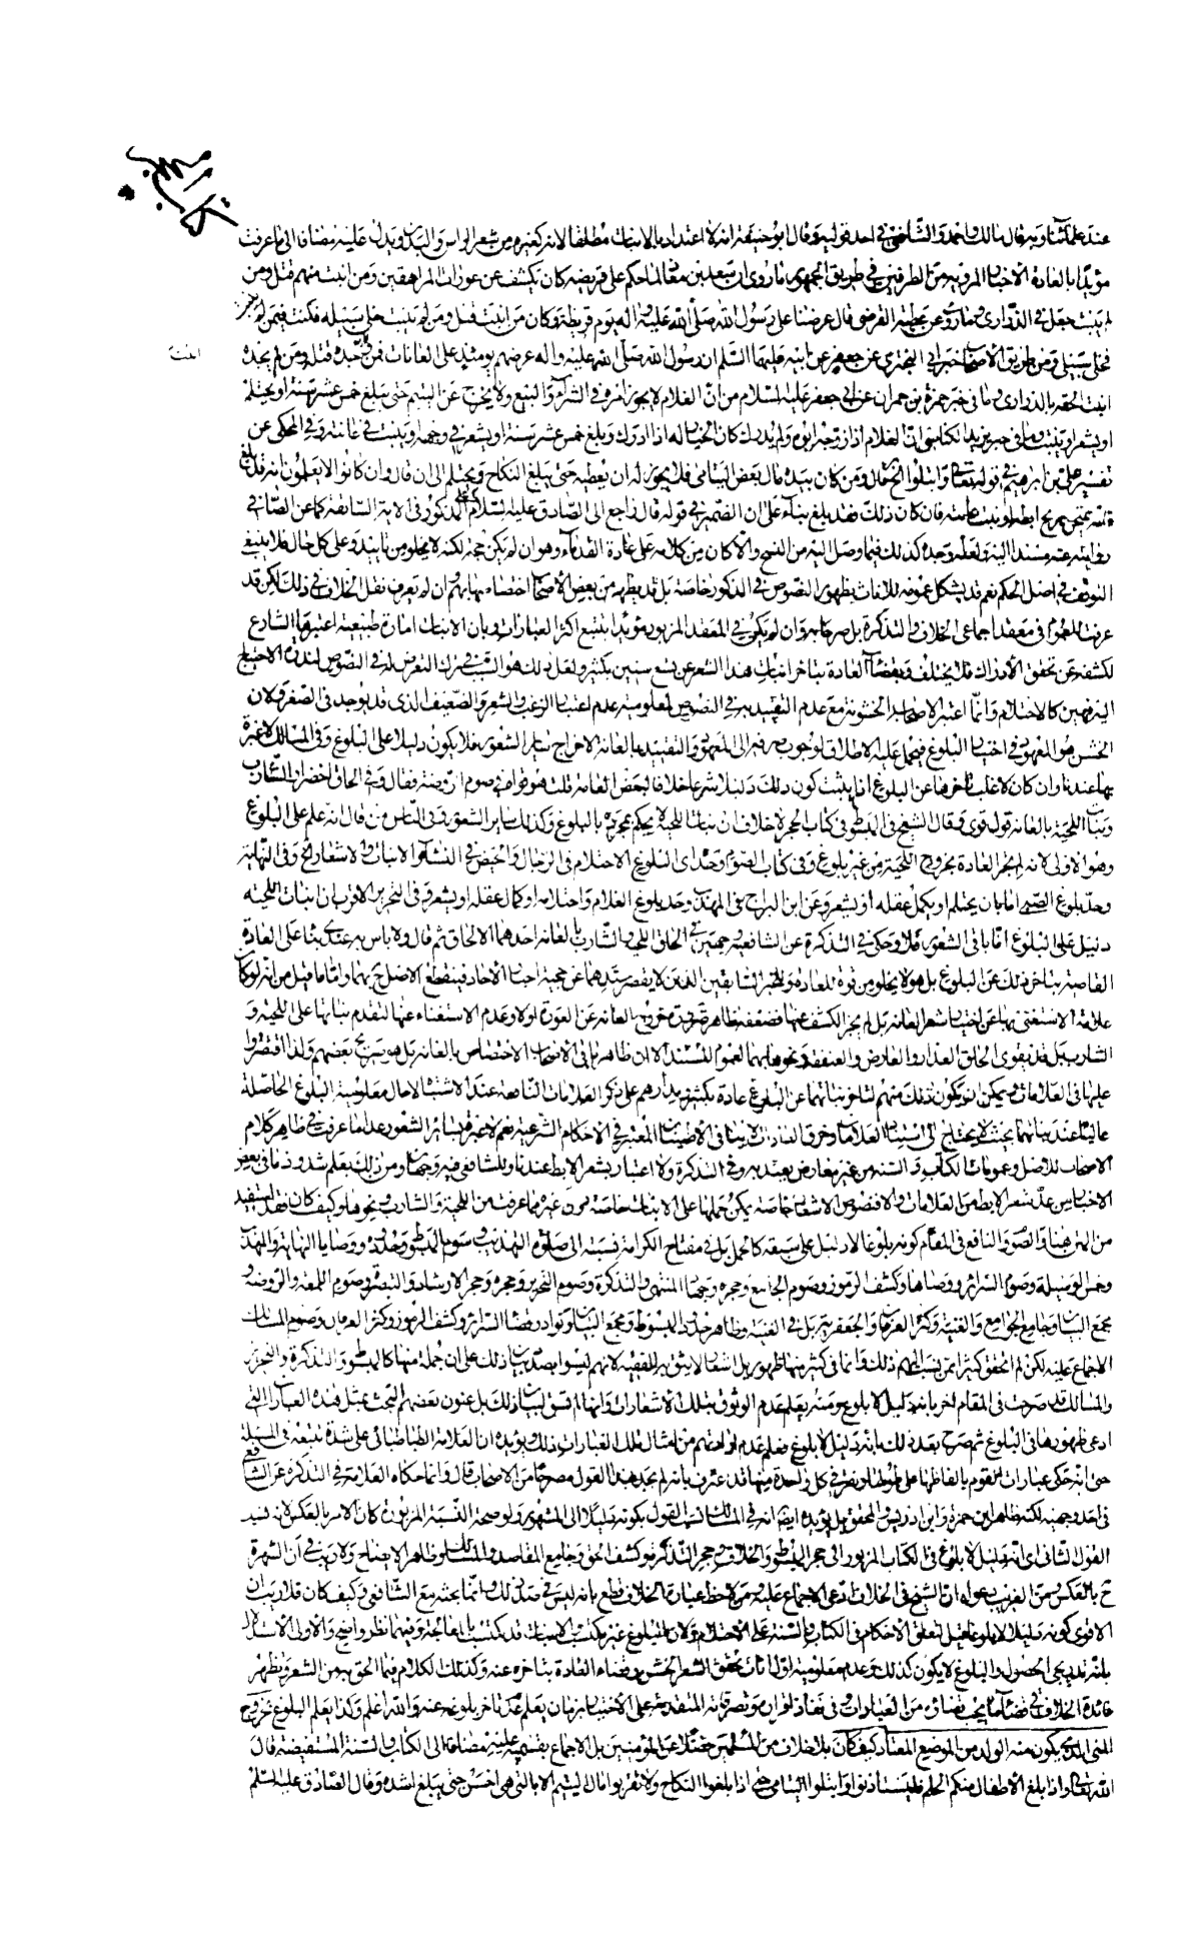 عند علمائنا وبه قال مالك واحمد والشافعي في احد قوليه وقال ابو حنيفة انه لا اعتداد بالانبات مطلقا لانه كغيره من شعر الراس والبدن ويدل عليه مضافا الى ما عرفت
مؤيدا بالعادة الاخبار المروية من الطرفين في طريق الجمهور ما روى ان سعد بن معاذ لما حكم على قريضه كان يكشف عن عورات المراهقين ومن انبت منهم قتل ومن
لم ينبت جعل في الذراري وما روى عن عطية القرضي قال عرضنا على رسول الله صلى الله عليه واله يوم قريظة وكان من انبت قتل ومن لم ينبت خلى سبيله فكنت فيمن لم
انبت
فخلى سبيلي ومن طريق الاصحاب خبر ابي البختري عن جعفر عن ابيه عليهما السلم ان رسول الله صلى الله عليه واله عرضهم يومئذ على العانات فمن وجده قتله ومن لم يجده
انبت الحقه بالذراري وما في خبر حمزة بن حمران عن ابي جعفر عليه السلام من ان الغلام لا يجوز امره في الشراء والبيع ولا يخرج عن اليتم حتى يبلغ خمس عشر سنة او يحتلم
او يشعر او ينبت وما في خبر يزيد الكناسي ان الغلام اذا زوجه ابوه ولم يدرك كان الخيار له اذا ادرك وبلغ خمس عشر سنة او يشعر في وجهه او ينبت في عانته وفي المحكى عن
تفسير علي بن ابرهيم في قوله تعالى وابتلوا الخ قال ومن كان بيده مال بعض اليتامى فلا يجوز له ان يعطيه حتى يبلغ النكاح ويحتلم الى ان قال وان كانوا لا يعلمون انه قد بلغ
فانه يمتحن بريح ابطه او نبت عانته فان كان ذلك فقد بلغ بناء على ان الضمير في قوله قال راجع الى الصادق عليه السلام المذكور في الاية السابقة كما عن الصافي
روايته عنه مسندا اليه ولعله وجده كذلك فيما وصل اليه من النسخ والا كان من كلامه على عادة القدماء وهو ان لم يكن حجة لكنه لا يخلو من تاييد وعلى كل حال فلا ينبغي
التوقف في اصل الحكم نعم قد يشكل عمومه للاناث بظهور النصوص في الذكور خاصة بل قد يظهر من بعض الاصحاب اختصاصه بهم وان لم نعرف نقل الخلاف في ذلك لكن قد
عرفت العموم في معقد اجماعي الخلاف والتذكرة بل صريحا وان لم يكن في المعقد المزبور مؤيدا بتتبع اكثر العبارات وبان الانبات امارة طبيعية اعتبرها الشارع
لكشفه عن تحقق الادراك فلا يختلف وبقضاء العادة بتاخر انبات هذا الشعر عن تسع سنين بكثير ولعل ذلك هو السبب في ترك التعرض له في النصوص لندرة الاحتياج
اليه فيهن كالاحتلام وانما اعتبر الاصحاب الخشونة مع عدم التقييد به في النصوص لمعلومية عدم اعتبار الزغب والشعر الضعيف الذي قد يوجد في الصغر ولان
الخشن هو المعهود في اختبار البلوغ فيحمل عليه الاطلاق لوجوب صرفه الى المعهود والتقييد بالعانة لاخراج سائر الشعور فلا يكون دليلا على البلوغ وفي المسالك لا عبرة
بها عندنا وان كان الاغلب تاخرها عن البلوغ اذ لم يثبت كون ذلك دليلا شرعا خلافا لبعض العامة قلت هو خوافه صوم الروضة فقال وفي الحاق اخضرار الشارب
ونبات اللحية بالعانة قول قوى وقال الشيخ في المبسوط في كتاب الحجر لا خلاف ان نبات اللحية لا يحكم بمجرده بالبلوغ وكذلك سائر الشعور وفي الناس من قال انه علم على البلوغ
وهو الاولى لانه لم يجر العادة بخروج اللحية من غير بلوغ وفي كتاب الصوم وحد اى البلوغ الاحتلام في الرجال والحيض في النساء او الانبات او الاشعار الخ وفي النهاية
وحد بلوغ الصبي اما بان يحتلم او يكمل عقله او يشعر وعن ابن البراج في المهذب وحد بلوغ الغلام واحتلامه او كمال عقله او يشعر وفي التحرير الاقرب ان نبات اللحية
دليل على البلوغ اما باقي الشعور فلا وحكى في التذكرة عن الشافعية وجهين في الحاق اللحية والشارب بالعانة احدهما الالحاق ثم قال ولا باس به عندي بناء على العادة
القاضية بتاخر ذلك عن البلوغ بل هو لا يخلو من قوة للعادة وللخبرين السابقين اللذين لا يقصر سندهما عن حجية اخبار الاحاد فينقطع الاصل ح بهما واما ما قيل من انه لو كان
علامة لاستغنى بها عن اختبار شعر العانة بل لم يجز الكشف عنها فضعفه ظاهر ضرورة خروج العانة عن العورة اولا وعدم الاستغناء عنها لتقدم نباتها على اللحية و
الشارب بل قد يقوى الحاق العذار والعارض والعنفقة ونحوها بهما لعموم المستند الا ان ظاهر باقي الاصحاب الاختصاص بالعانة بل هو صريح بعضهم ولذا اقتصروا
عليها في العلامات ويمكن ان يكون ذلك منهم لتاخر نباتهما عن البلوغ عادة بكثير بل همهم على ذكر العلامات النافعة عند الاشتباه لا حال معلومية البلوغ الحاصلة
غالبا عند نباتهما بحيث لا يحتاج الى استبانة العلامات وخرق العادات لا ينافي الاطمينان المعتبر في الاحكام الشرعية نعم لا عبرة بسائر الشعور عدا ما عرفت في ظاهر كلام
الاصحاب للاصل وعمومات الكتاب والسنة من غير معارض يعتد به وفي التذكرة ولا اعتبار بشعر الابط عندنا وللشافعي فيه وجهان ومن ذلك يعلم شذوذ ما في بعض
الاخبار من عد شعر الابط من العلامات والا فنصوص الاشعار خاصة يمكن حملها على الانبات خاصة دون غيره مما عرفت من اللحية والشارب ونحوها وكيف كان فقد استفيد
من المتن هنا وفي الصوم والنافع في المقام كونه بلوغا لا دليل على سبقه كالحمل بل في مفتاح الكرامة نسبته الى صلوة التهذيب وصوم المبسوط وحدوده ووصايا النهاية والمهذب
وخمس الوسيلة وصوم السرائر ووصاياها وكشف الرموز وصوم الجامع وحجره وجهاد المنتهى والتذكرة وصوم التحرير وحجره وحجر الارشاد والتبصرة وصوم اللمعة والروضة و
مجمع البيان وجامع الجوامع والغنية وكنز العرفان والجعفرية بل في الغنية وظاهر حدود المبسوط ومجمع البيان ونوادر قضاء السرائر وكشف الرموز وكنز العرفان وصوم المسالك
الاجماع عليه لكن لم اتحقق كثيرا ممن نسب اليهم ذلك وانما في كثير منها ظهور بل اشعار لا يثق به الفقيه لانهم ليسوا بصدد بيان ذلك على ان جملة منها كالمبسوط والتذكرة والتحرير
والمسالك قد صرحت في المقام الاخر بانه دليل لا بلوغ ومنه يعلم عدم الوثوق بتلك الاشعارات وانها لم تسق لبيان ذلك بل عنون بعضهم البحث بمثل هذه العبارة التي
ادعى ظهورها في البلوغ ثم صرح بعد ذلك بانه دليل لا بلوغ فعلم عدم ارادتهم من امثال تلك العبارات ذلك ويؤيده ان العلامة الطباطبائي على شدة تتبعه في المسئلة
حتى انه حكى عبارات القوم بالفاظها على طولها ونظر في كل واحدة منها قد اعترف بانه لم يجد هذا القول مصرحا من الاصحاب قال وانما حكاه العلامة في التذكرة عن الشافعي
في احد وجهيه لكنه ظاهر ابن حمزة وابن ادريس والمحقق بل يؤيده ايضا انه في المسالك نسب القول بكونه دليلا الى المشهور ولو صحت النسبة المزبورة كان الامر بالعكس لانه نسب
القول الثاني اى انه دليل لا بلوغ في الكتاب المزبور الى حجر المبسوط والخلاف وحجر التذكرة وكشف الحق وجامع المقاصد والمسالك وظاهر الايضاح ولا ريب في ان الشهرة
ح بالعكس ومن الغريب دعواه ان الشيخ في الخلاف ادعى الاجماع عليه ومن لاحظ عبارة الخلاف قطع بانه ليس في صدد ذلك وانما بحثه مع الشافعي وكيف كان فلا ريب ان
الاقوى كونه دليلا لا بلوغا قيل لتعلق الاحكام في الكتاب والسنة على الاحتلام ولان البلوغ غير مكتسب والانبات قد يكتسب بالمعالجة وفيهما نظر واضح والاولى الاستدلال
بانه تدريجي الحصول والبلوغ لا يكون كذلك وعدم معلومية اول آنات تحقق الشعر الخشن وقضاء العادة بتاخره عنه وكذلك الكلام فيما الحق به من الشعر وتظهر
فائدة الخلاف في قضاء ما يجب قضاؤه من العبادات وفي نفاذ اقراره وتصرفاته المتقدمة على الاختبار بزمان يعلم عدم تاخر بلوغه عنه والله اعلم وكذا يعلم البلوغ بخروج
المني الذي يكون منه الولد من الموضع المعتاد كيف كان بلا خلاف من المسلمين فضلا عن المؤمنين بل الاجماع بقسميه عليه مضافا الى الكتاب والسنة المستفيضة قال
الله تعالى واذا بلغ الاطفال منكم الحلم فليستاذنوا وابتلوا اليتامى حتى اذا بلغوا النكاح ولا تقربوا مال اليتيم الا بالتي هي احسن حتى يبلغ اشده وقال الصادق عليه السلم